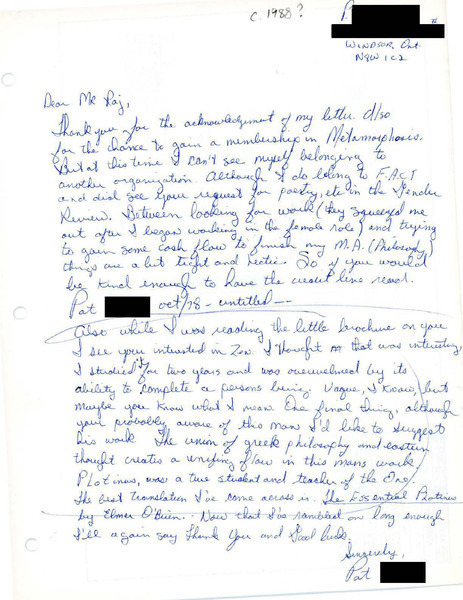 c. 1988?
P.
WINDSOR, Ont.
N8W 1C2
Dear Mr Raj,
Thank you for the acknowledgement of my letter. Also
for the chance to gain a membership in Metamorphosis.
But at this time I can't see myself belonging to
another organization. Although I do belong to F.A.C.T
and did see your request for poetry, etc in the Gender
Review. Between looking for work (they squeezed me
out after I began working in the female role) and trying
to gain some cash flow to finish my M.A. (Philosophy)
things are a bit tight and hectic. So if you would
be kind enough to have the credit line read.
Pat oct/78 - untitled --
Also while I was reading the little brochure on you
I see you interested in Zen. I thought that was interesting,
I studied it for two years and was overwelmed by its
ability to complete a persons being. Vague, I know, but
maybe you know what I mean. One final thing, although
your probably aware of this man I'd like to suggest
his work. The union of greek philosophy and eastern
thought creates a unifing flow in this mans work
Plotinus, was a true student and teacher of the One.
The best translation I've come across is. The Essential Plotinus
by Elmer O'Brien. Now that I've rambled on long enough
I'll again say Thank You and Good luck.
Sincerely,
Pat